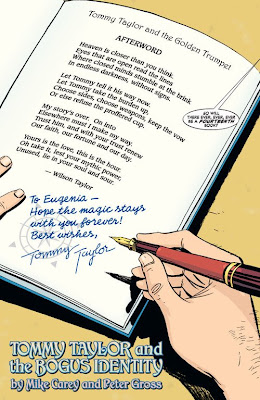 Tommy Taylor and the Golden Trumpet
AFTERWORD
Heaven is closer than you think.
Eyes that are open read the lines
Where closed minds stumble at the brink
In endless darkness, without signs.
Let Tommy tell it his way now.
Let Tommy take the burden up,
Choose sides, choose weapons, keep the vow
Or else refuse the proffered cup.
My story's over. On into
Elsewhere must I make my way.
Trust him, and with your trust renew
Our faith, our fortune and our day.
Yours is the love, this is the hour.
Oh take it, lest your mythic power,
Unused, lie in your soul and sour.
— Wilson Taylor
SO WILL
THERE EVER, EVER, EVER
BE A FOURTEENTH
BOOK?
To Eugenia –
Hope the magic stays
with you forever!
Best wishes,
Tommy Taylor
TOMMY TAYLOR and
the BOGUS IDENTITY
by Mike Carey and Peter Gross